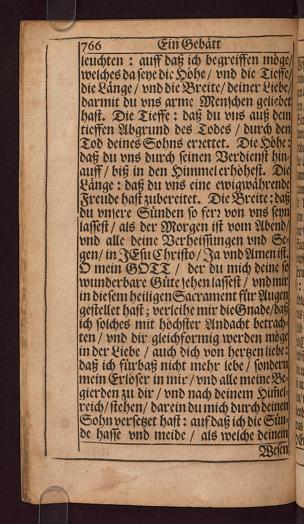 766 Ein Gebätt
leuchten : auff daß ich begreiffen möge
welches da seye die Höhe / vnd die Tieffe /
die Länge / vnd die Breite / deiner Liebe /
darmit du vns arme Menschen geliebet
hast. Die Tieffe : daß du vns auß dem
tieffen Abgrund des Todes / durch den
Tod deines Sohns errettet. Die Höhe :
daß du vns durch seinen Verdienst hin-
auff / biß in den Himmel erhöhest. Die
Länge : daß du vns eine ewigwährende
Freude hast zubereitet. Die Breite : daß
du vnsere Sünden so ferr von vns seyn
lassest / als der Morgen ist vom Abend /
vnd alle deine Verheissungen vnd Se-
gen / in JEsu Christo / Ja vnd Amen ist.
O mein GOTT / der du mich deine so
wunderbare Güte sehen lassest / vnd mir
in diesem heiligen Sacrament für Augen
gestellet hast ; verleihe mir die Gnade / daß
ich solches mit höchster Andacht betrach-
ten / vnd dir gleichformig werden möge
in der Liebe / auch dich von hertzen liebe :
daß ich fürbaß nicht mehr lebe / sondern
mein Erlöser in mir / vnd alle meine Be-
gierden zu dir / vnd nach deinem Him̃el-
reich / stehen / darein du mich durch deinen
Sohn versetzet hast : auf daß ich die Sün-
de hasse vnd meide / als welche deinem
Wesen